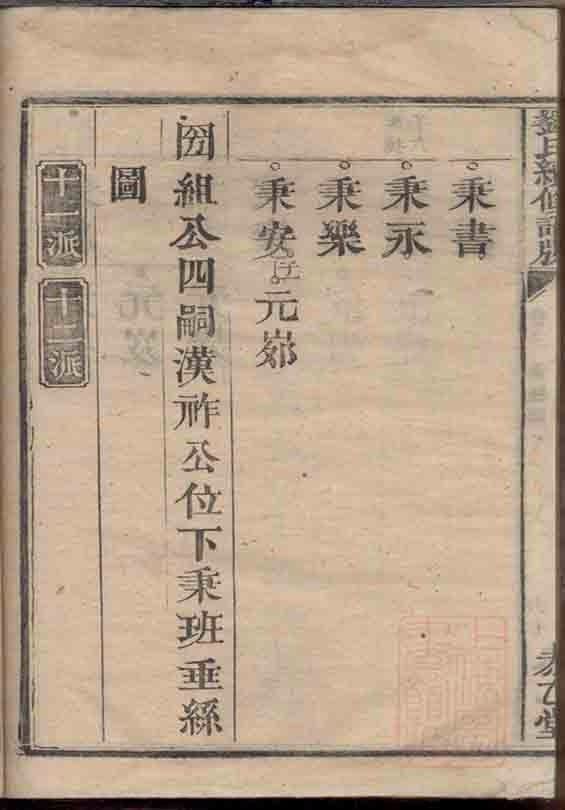 秉書
秉永
秉樂
秉安 元郊
组公四嗣漢祚公位下秉班垂絲
圖
十一派 十二派
氏續修譜牒
堂